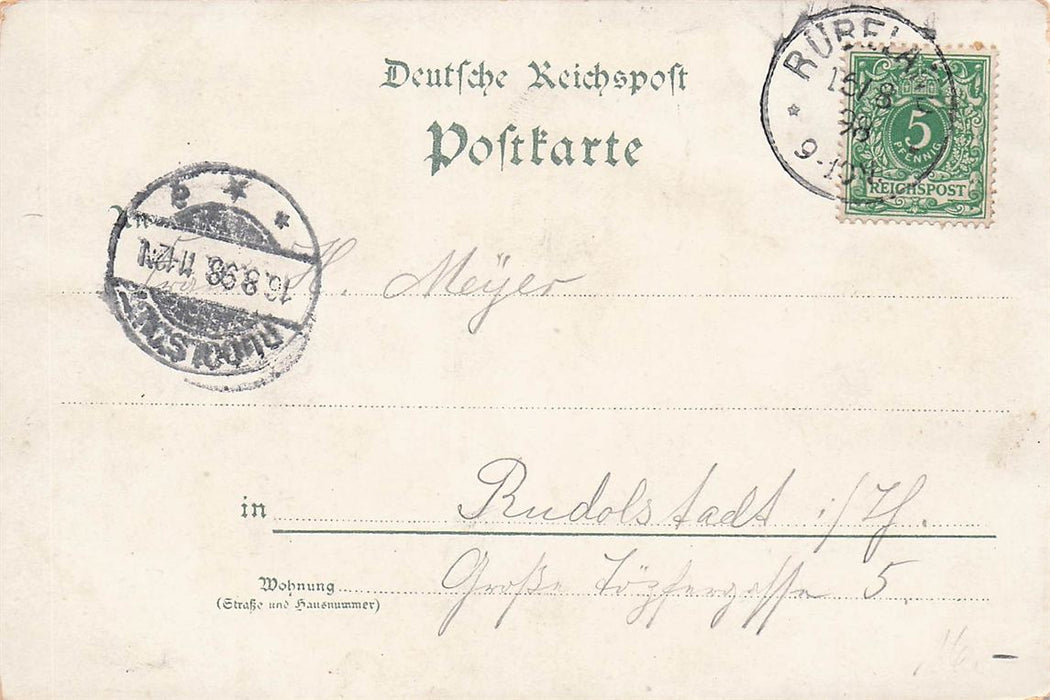 Deutsche Reichspost
Postkarte
RÜBELAND
15/8
98
9-10N.
5
PFENNIG
REICHSPOST
16.8.98. 11-12N.
RUDOLSTADT
An
H. Meÿer
in Rudolstadt i/Th.
Wohnung Große Töpfergasse 5.
(Straße und Hausnummer)